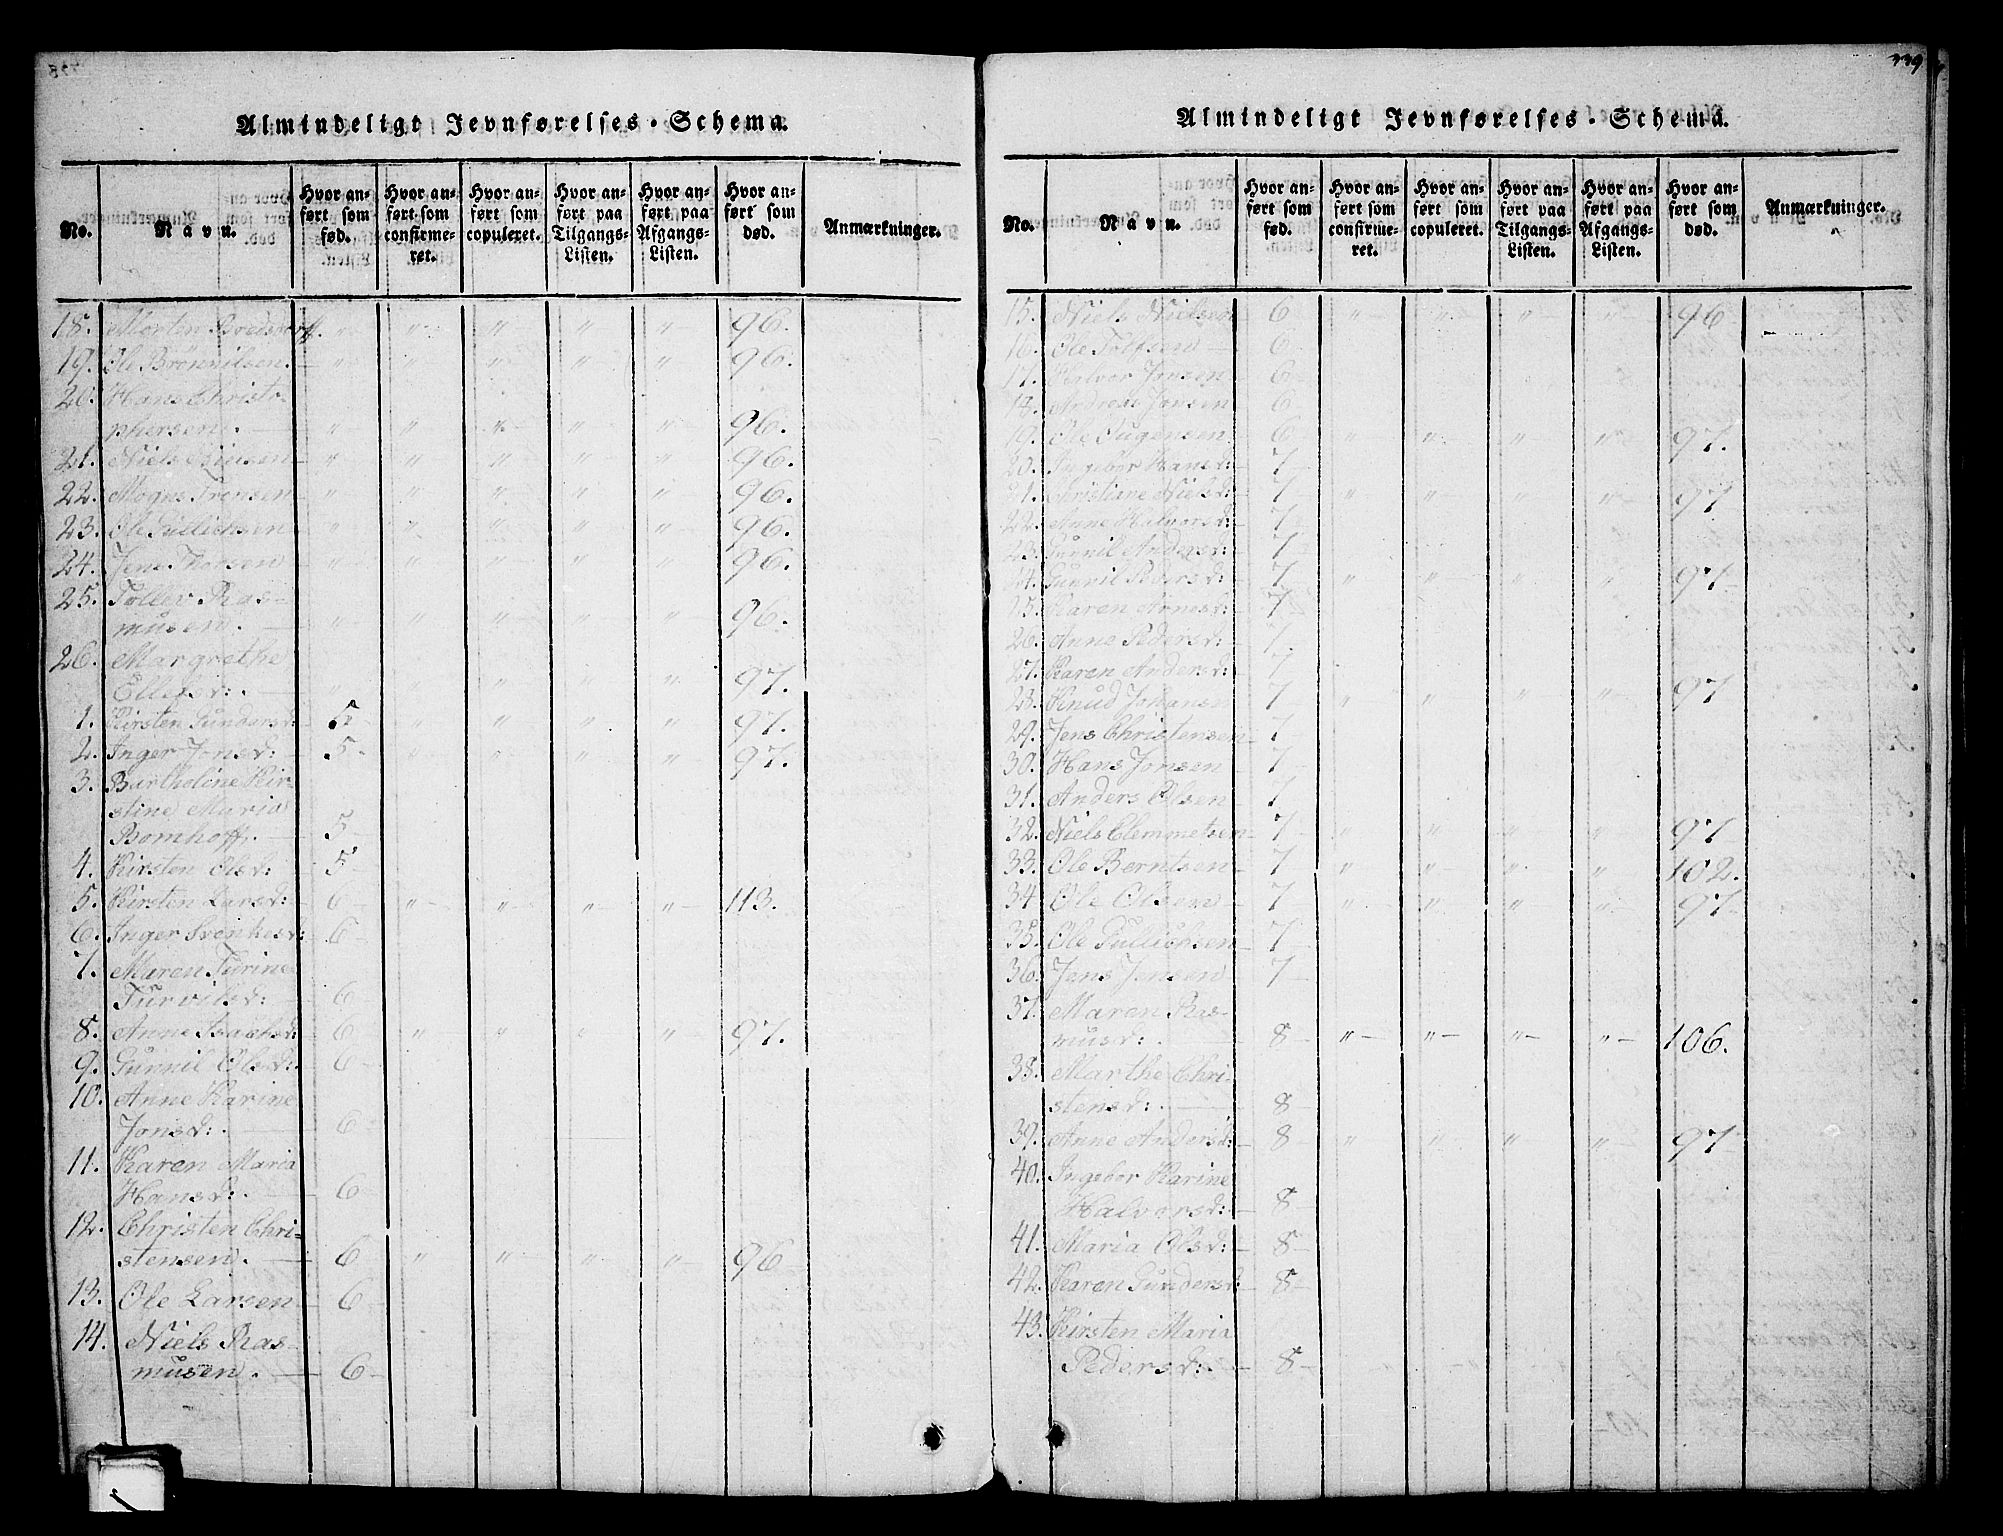 Almindeligt Jevnførelses-Schema.
No. Navn. Hvor anført som fød. Hvor anført som confirmeret. Hvor anført som copuleret. Hvor anført paa Tilgangs-Listen. Hvor anført paa Afgangs-Listen. Hvor anført som død. Anmærkninger.
18. Morten Bredsdorff. " " " " " 96.
19. Ole Brønnilsen. " " " " " 96.
20. Hans Christo-
phersen. " " " " " 96.
21. Niels " " " " " 96.
22. Mogns " " " " " 96.
23. Ole Gullichsen " " " " " 96.
24. Jens Thorsen " " " " " 96.
25. Tollev Ras-
musen. " " " " " 96.
26. Margrethe
Ellefsd: " " " " 97.
1. Kirsten Gundersd: 5 " " " " 97.
2. Inger Jonsd: 5 " " " " 97.
3. Bartholine Kir-
stine Maria
Bomhoff. 5
4. Kirsten Olsd: 5
5. Kirsten Larsd: 6 " " " " 113.
6. Inger Svenkesd: 6
7. Maren Turine
Turvilsd: 6
8. Anne Isachsd: 6 " " " " 97.
9. Gunnil Olsd: 6
10. Anne Karine
Jonsd: 6
11. Karen Maria
Hansd: 6
12. Christen Chri-
stensen. 6 " " " " 96
13. Ole Larsen 6
14. Niels Ras-
musen. 6
339
Almindeligt Jevnførelses-Schema.
No. Navn. Hvor anført som fød. Hvor anført som confirmeret. Hvor anført som copuleret. Hvor anført paa Tilgangs-Listen. Hvor anført paa Afgangs-Listen. Hvor anført som død. Anmærkninger.
15. Niels Nielsen 6 " " " " 96
16. Ole Tolfsen 6
17. Halvor Jonsen 6
18. Andreas Jonsen 6
19. Ole 6 " " " " 97.
20. Ingebor Hansd: 7
21. Christiane Nielsd: 7 " " " " 97
22. Anne Halvorsd: 7
23. Gunnil Andersd: 7
24. Gunnil Pedersd: 7 " " " " 97
25. Karen Arnesd: 7
26. Anne Pedersd: 7
27. Karen Andersd: 7
28. Knud Johansn 7 " " " " 97
29. Jens Christensen 7
30. Hans Jonsen 7
31. Anders Olsen 7
32. Niels Clemmetsen 7 " " " " 97
33. Ole Berntsen 7 " " " " 102.
34 Ole Olsen 7 " " " " 97
35. Ole Gullichsen 7
36. Jens Jensen 7
37. Maren Ras-
musd: 8 " " " " 106.
38. Marthe Chri-
stensd: 8
39. Anne Andersd: 8 " " " " 97
40. Ingebor Karine
Halvorsd: 8
41. Maria Olsd: 8
42. Karen Gundersd: 8
43. Kirsten Maria
Pedersd: 8